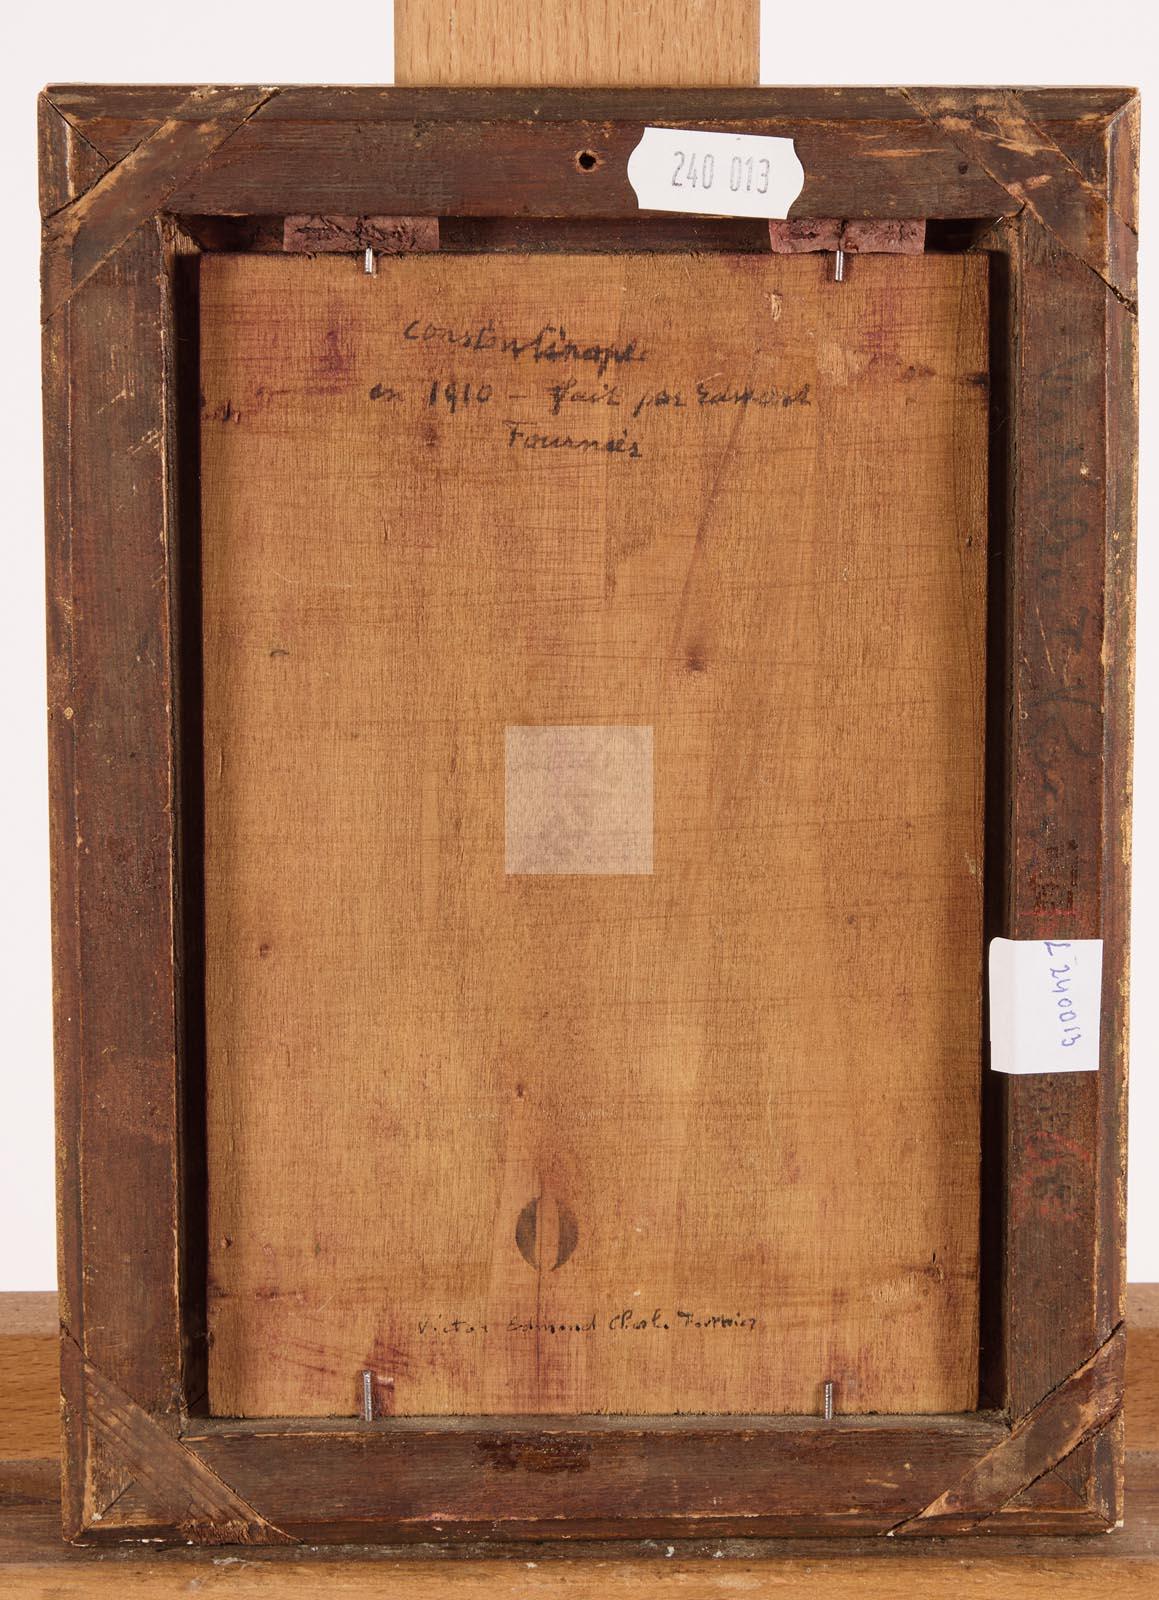 240 013
Constantinople
en 1910 - fait par Edmond
Fournier
L 240013
Victor Edmond Charles Fournier